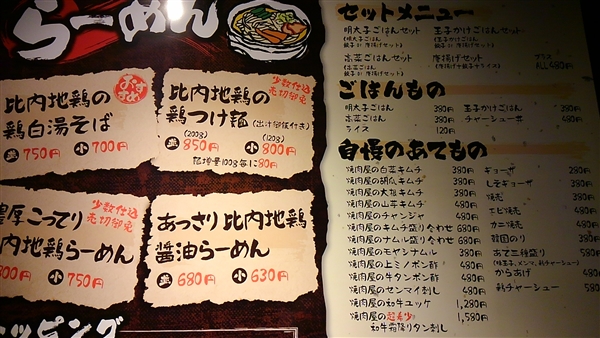 らーめん
おすすめ
比内地鶏の
鶏白湯そば
並 750円 小 700円
少数仕込
売切御免
比内地鶏の
鶏つけ麺(出汁御飯付き)
(200g) (120g)
並 850円 小 800円
麺増量100g毎に80円
少数仕込
売切御免
濃厚こってり
内地鶏らーめん
800円 小 750円
あっさり比内地鶏
醤油らーめん
並 680円 小 630円
ッピング
セットメニュー
明太子ごはんセット
(明太子ごはん
餃子 or 唐揚げセット)
玉子かけごはんセット
(玉子かけごはん
餃子 or 唐揚げセット)
高菜ごはんセット
(高菜ごはん
餃子 or 唐揚げセット)
唐揚げセット
(唐揚げや餃子やライス)
プラス
480円
ごはんもの
明太子ごはん 380円
高菜ごはん 380円
ライス 120円
玉子かけごはん 380円
チャーシュー丼 480円
自慢のあてもの
焼肉屋の白菜キムチ 380円
焼肉屋の胡瓜キムチ 380円
焼肉屋の大根キムチ 380円
焼肉屋の山芋キムチ 480円
焼肉屋のチャンジャ 480円
焼肉屋のキムチ盛り合わせ 680円
焼肉屋のナムル盛り合わせ 680円
焼肉屋のモヤシナムル 380円
焼肉屋の上ミノポン酢 480円
焼肉屋の牛タンポン酢 480円
焼肉屋のセンマイ刺し 480円
焼肉屋の和牛ユッケ 1,280円
焼肉屋の超希少 1,580円
和牛霜降りタン刺し
ギョーザ 280円
しそギョーザ 380円
焼売 380円
エビ焼売 480円
カニ焼売 480円
韓国のり 380円
あて三種盛り 580円
(味玉子、メンマ、チャーシュー)
からあげ 480円
チャーシュー 580円